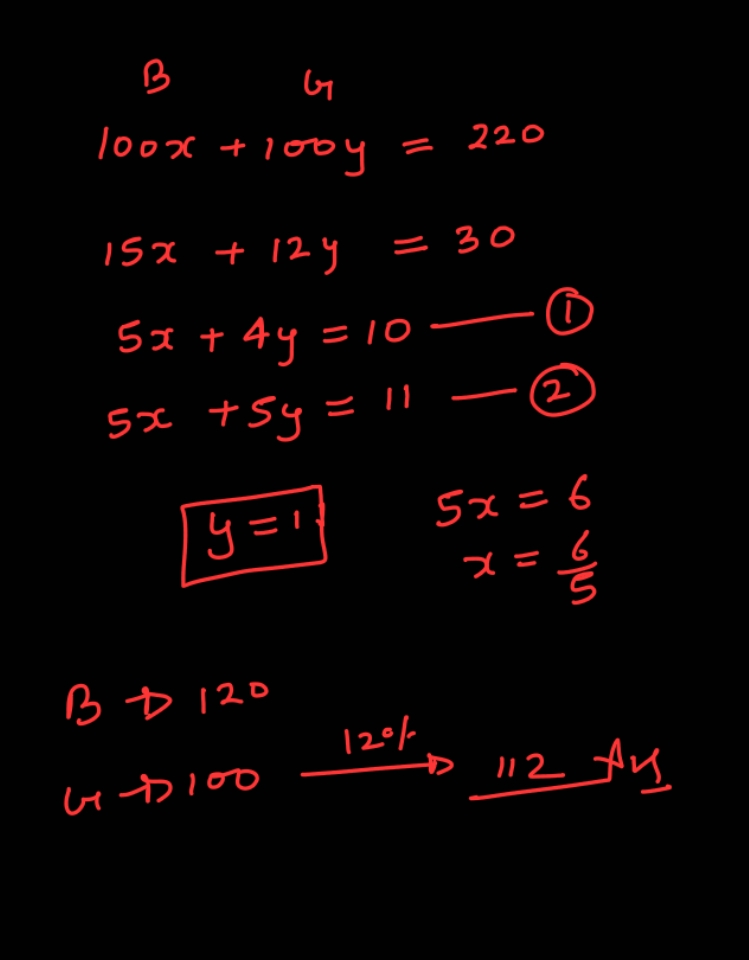 B G
100x + 100y = 220
15x + 12y = 30
5x + 4y = 10 — ①
5x + 5y = 11 — ②
y = 1 5x = 6
x = 6/5
B → 120
G → 100 12% → 112 Ans